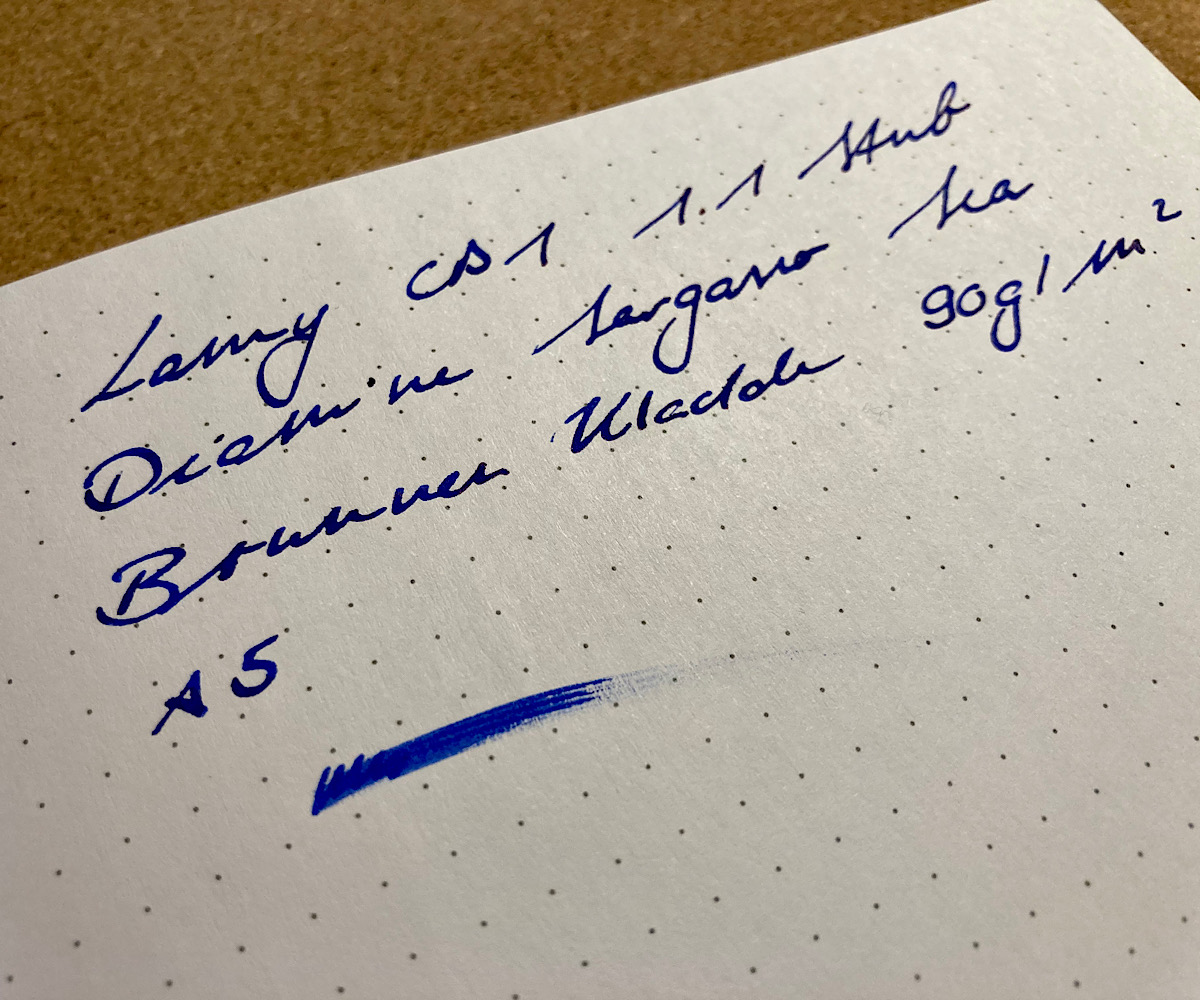 Lamy CS1 1.1 Stub
Diamine Sargasso Sea
Brunnen Kladde 90g/m²
A5